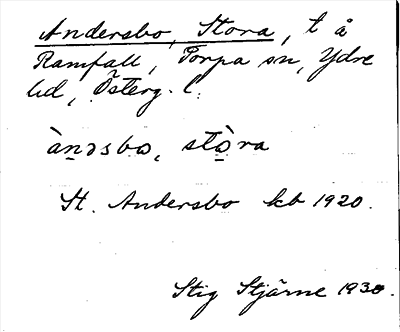 Andersbo, Stora, t å
Ramfall, Torpa sn, Ydre
hd, Österg. l.
àn̲əsbo, stò̲ra
St. Andersbo kb 1920.
Stig Stjärne 1930.